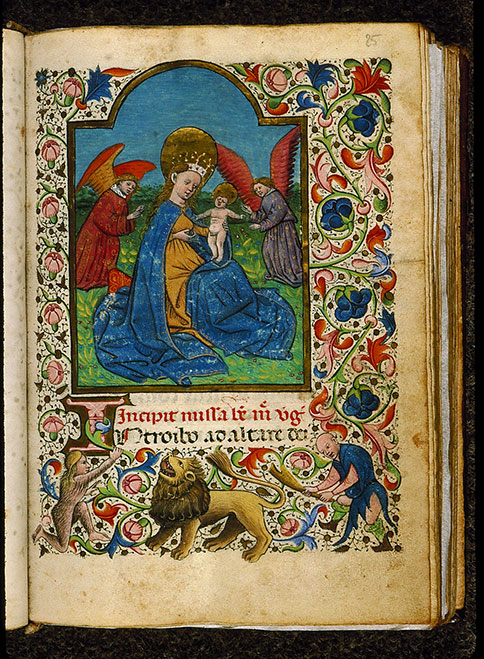 25
Incipit missa bẽ m̃ vg̃
Introibo ad altare dei